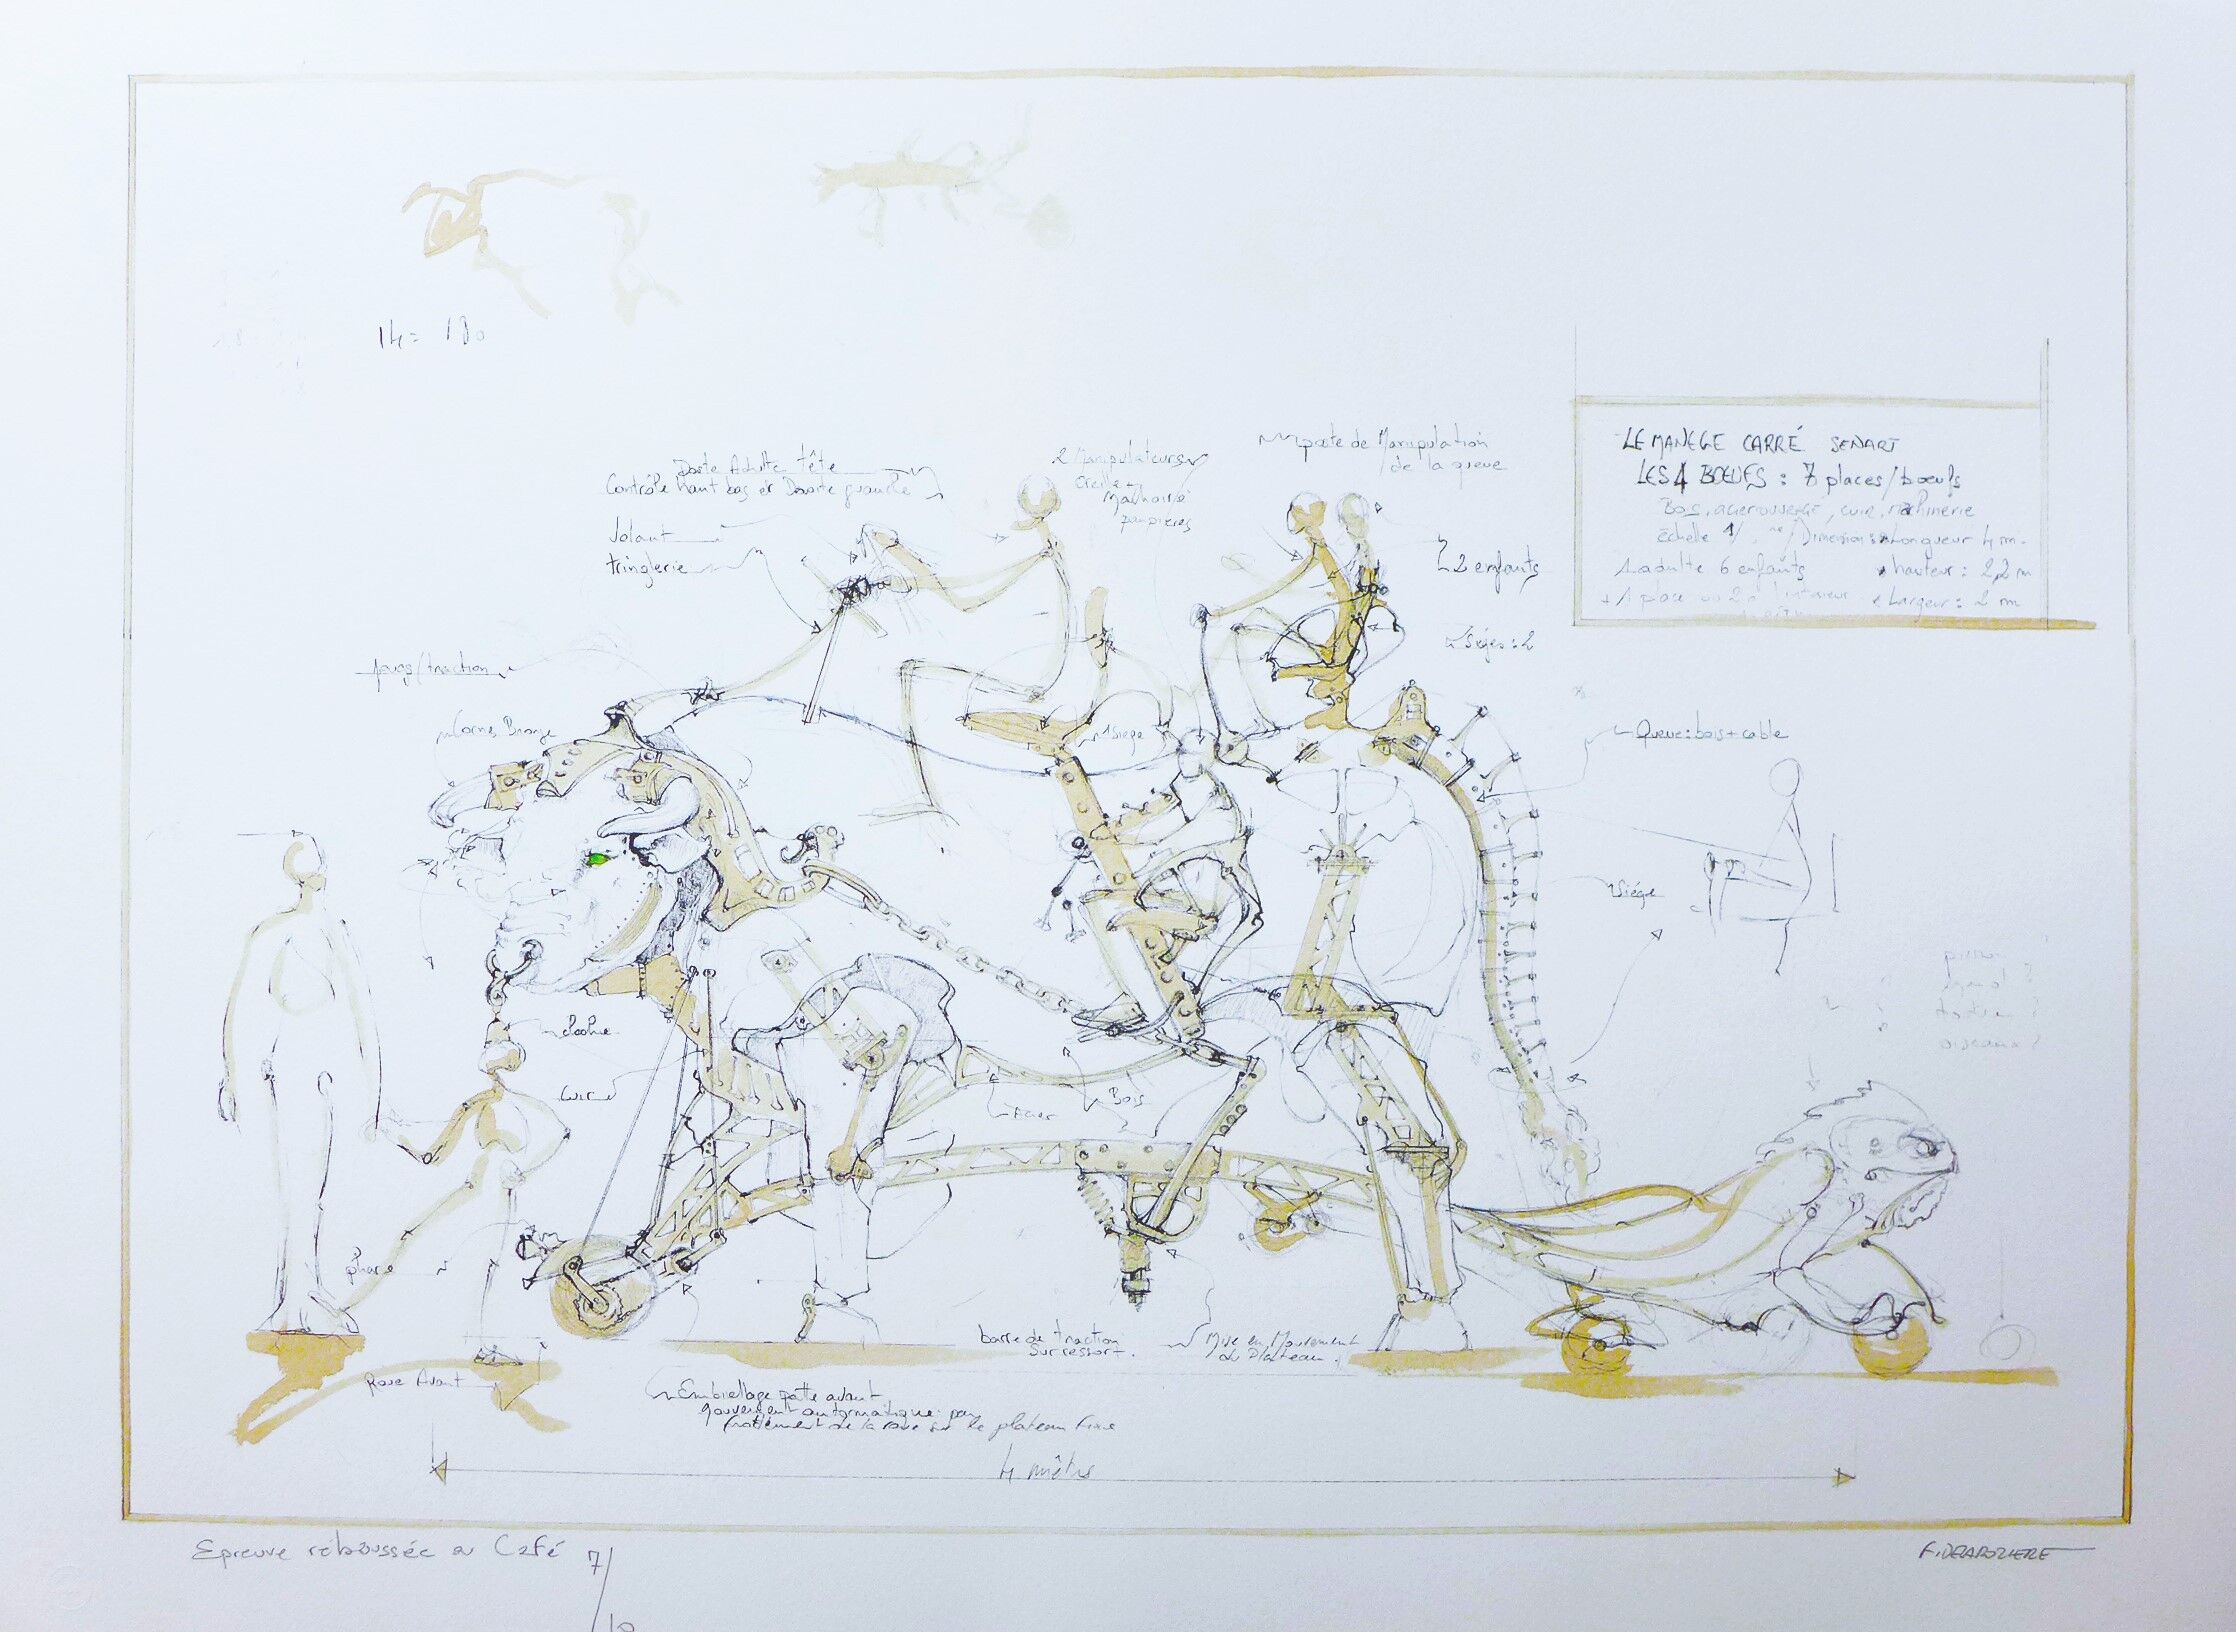 14 = 180
Poste Adulte tête
Contrôle haut bas et Droite gauche
Volant
tringlerie
2 Manipulateurs
Oreille +
Machoire
paupières
poste de Manipulation
de la queue
2 enfants
Sièges : 2
LE MANEGE CARRÉ SENART
LES 4 BŒUFS : 7 places/bœufs
Bois, acier, cuir, machinerie
échelle 1/ Dimensions Longueur 4 m.
1 adulte 6 enfants • hauteur : 2,2 m
+ 1 place ou 2 à l'intérieur • Largeur : 2 m
/traction
Cornes Bronze
1 siège
Queue : bois + cable
Siège
cloche
Cuir
Acier
Bois
phare
Roue Avant
barre de traction
sur ressort.
Mise en Mouvement
du Plateau.
Embiellage patte avant
mouvement automatique par
frottement de la roue sur le plateau fixe
4 mètres
Epreuve rehaussée au Café 7/10
F. DELAROZIERE